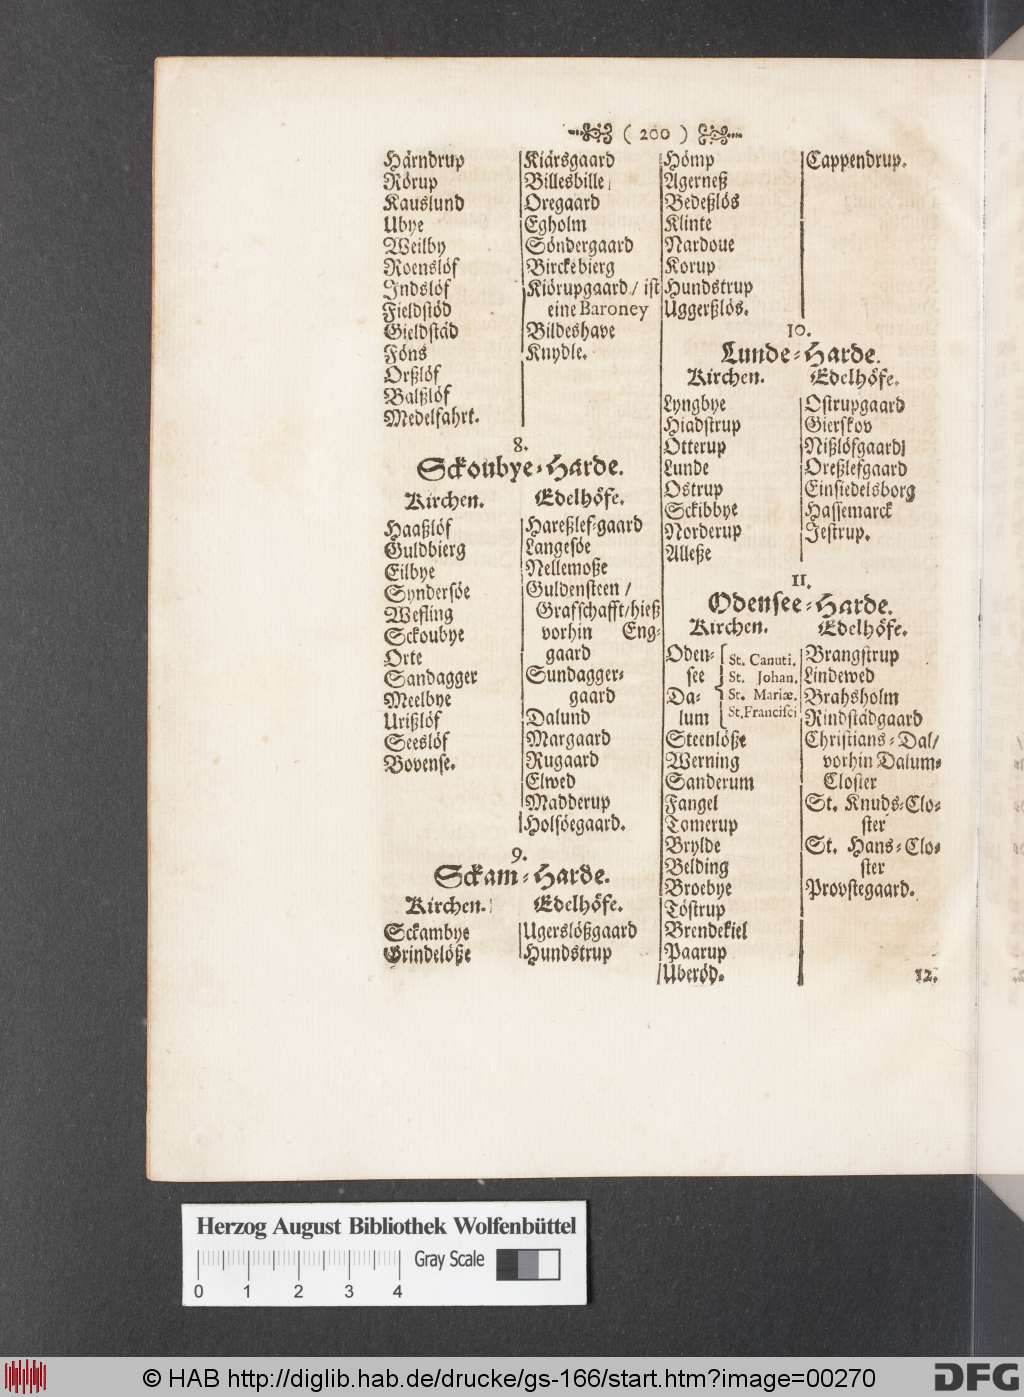 ( 200 )
Härndrup
Rörup
Kauslund
Ubye
Weilby
Roenslöf
Indslöf
Fieldstöd
Gieldstäd
Föns
Orßlöf
Balßlöf
Medelfahrt.
Kiärsgaard
Billesbille
Oregaard
Egholm
Söndergaard
Birckebierg
Kiörupgaard / ist
eine Baroney
Bildeshave
Knydle.
8.
Sckoubye-Harde.
Kirchen.
Haaßlöf
Guldbierg
Eilbye
Syndersöe
Wefling
Sckoubye
Orte
Sandagger
Meelbye
Urißlöf
Seeslöf
Bovense.
Edelhöfe.
Hareßlef-gaard
Langesöe
Nellemoße
Guldensteen /
Grafschafft/hieß
vorhin Eng-
gaard
Sundagger-
gaard
Dalund
Margaard
Rugaard
Elwed
Madderup
Holsöegaard.
9.
Sckam-Harde.
Kirchen.
Sckambye
Grindelöße
Edelhöfe.
Ugerslößgaard
Hundstrup
Hömp
Agerneß
Bedeßlös
Klinte
Nardoue
Korup
Hundstrup
Uggerßlös.
Cappendrup.
10.
Lunde-Harde.
Kirchen.
Lyngbye
Hiadstrup
Otterup
Lunde
Ostrup
Sckibbye
Norderup
Alleße
Edelhöfe.
Ostrupgaard
Gierskov
Nißlöfgaard
Oreßlefgaard
Einsiedelsborg
Hassemarck
Jestrup.
11.
Odensee-Harde.
Kirchen.
Oden-
see
Da-
lum
St. Canuti.
St. Johan.
St. Mariæ.
St. Francisci
Steenlöße
Werning
Sanderum
Fangel
Tomerup
Brylde
Belding
Broebye
Töstrup
Brendekiel
Paarup
Uberöd.
Edelhöfe.
Brangstrup
Lindewed
Brahsholm
Rindstädgaard
Christians-Dal/
vorhin Dalum-
Closter
St. Knuds-Clo-
ster
St. Hans-Clo-
ster
Provstegaard.
12.
Herzog August Bibliothek Wolfenbüttel
Gray Scale
0 1 2 3 4
© HAB http://diglib.hab.de/drucke/gs-166/start.htm?image=00270
DFG